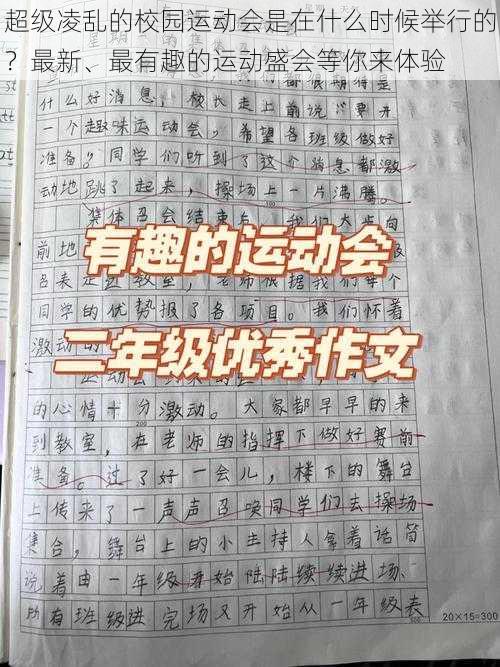 超级凌乱的校园运动会是在什么时候举行的
？最新、最有趣的运动盛会等你来体验
什么好消息，校长走上前说“要开
一个趣味运动会。希望各班级做好
准备”同学们听到了这个消息都激
动地跳了起来，操场上一片沸腾。
集体召会结束后，我们大步向
前地
各表走进教室，老师根据我们每个
同学的优势报了各项目。我们怀着
激动的
有趣的运动会
二年级优秀作文
的心情十分激动。大家都早早的来
到教室，在老师的指挥下做好赛前
准备。过了好一会儿，楼下的舞台
上传来了一声声召唤同学们去操场
集合，舞台上的小主持人拿着话筒
说着由一年级开始陆陆续续进场.
所有班级进完场又开始从一年级表
20×15=300